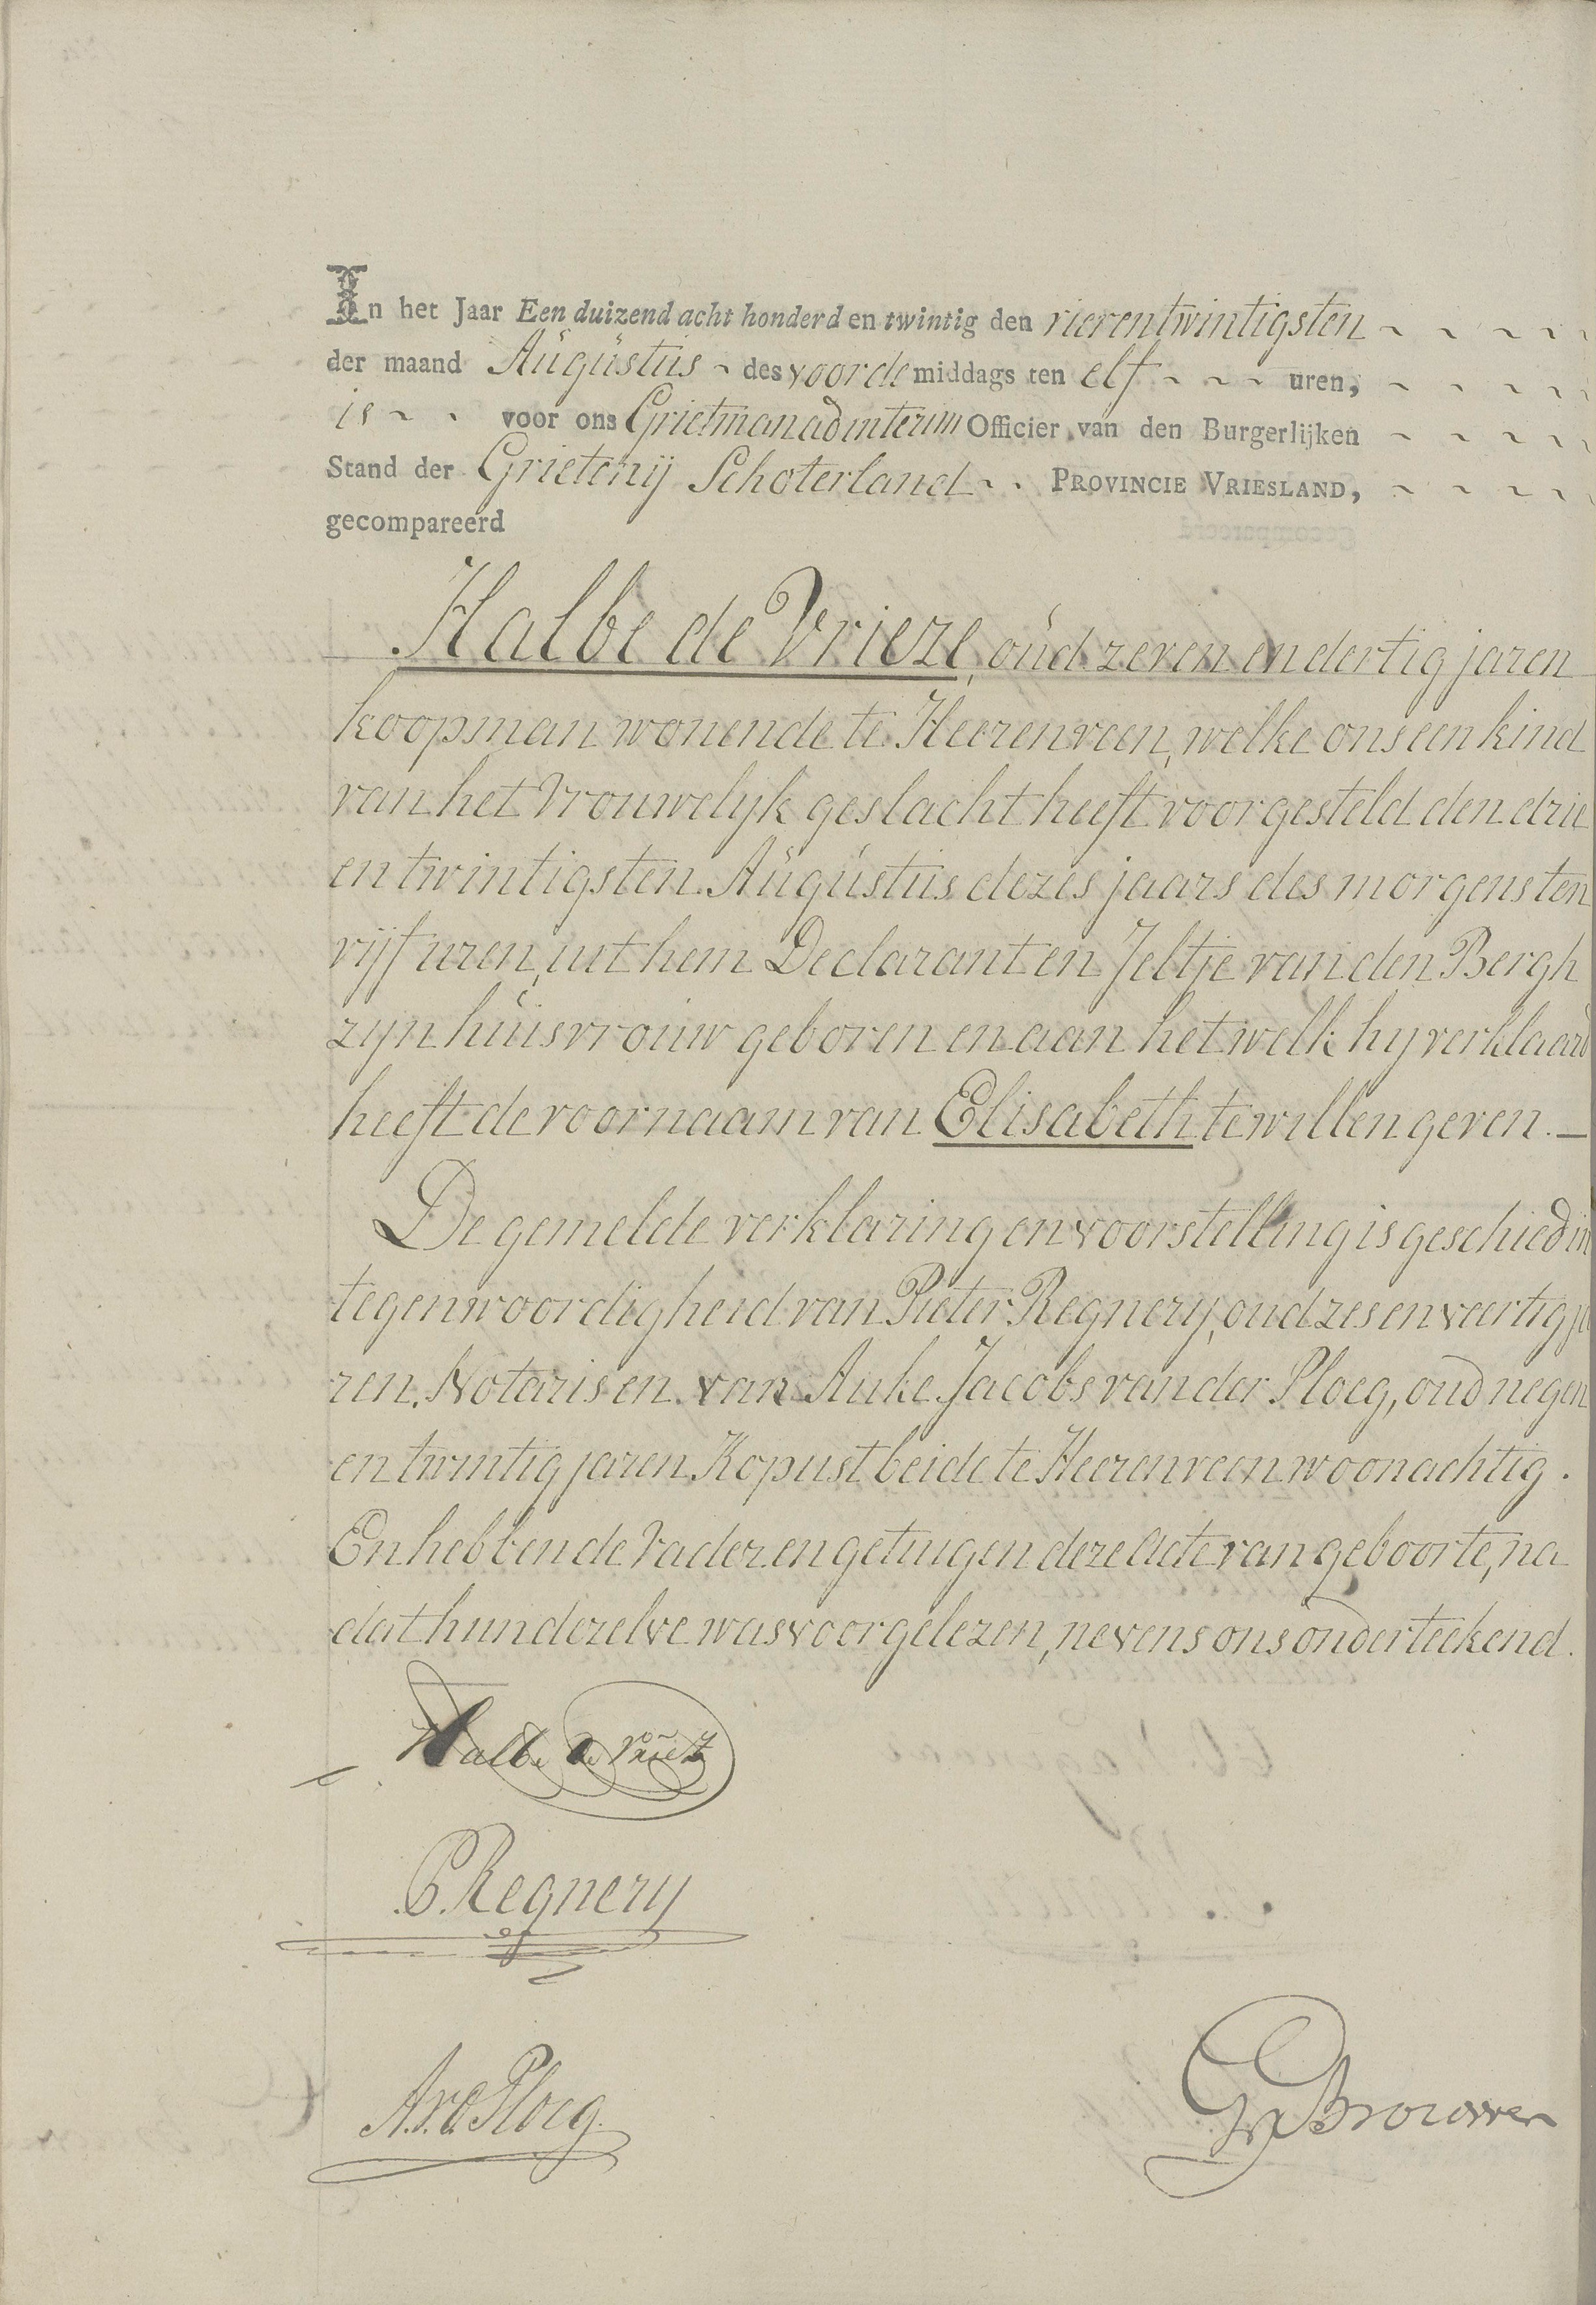 In het Jaar Een duizend acht honderd en twintig den vierentwintigsten
der maand Augustus des voorde middags ten elf uren,
is voor ons Grietman ad interim Officier van den Burgerlijken
Stand der Grietenij Schoterland PROVINCIE VRIESLAND,
gecompareerd
Halbe de Vrieze, oud zeven en dertig jaren
koopman wonende te Heerenveen, welke ons een kind
van het Vrouwelyk geslacht heeft voorgesteld den drie
en twintigsten Augustus dezes jaars des morgens ten
vijf uren, uit hem Declarant en Jeltje van den Bergh
zijn huisvrouw geboren en aan het welk hy verklaard
heeft de voornaam van Elisabeth te willen geven.
De gemelde verklaring en voorstelling is geschied in
tegenwoordigheid van Pieter Regnery, oud zes en veertig ja
ren, Notaris en van Auke Jacobs van der Ploeg, oud negen
en twintig jaren, Kopiist beide te Heerenveen woonachtig.
En hebben de Vader en getuigen deze Acte van geboorte, na
dat hun dezelve was voorgelezen, nevens ons onderteekend.
Halbe de Vriez
P. Regnery
A.v.d. Ploeg
Brouwer